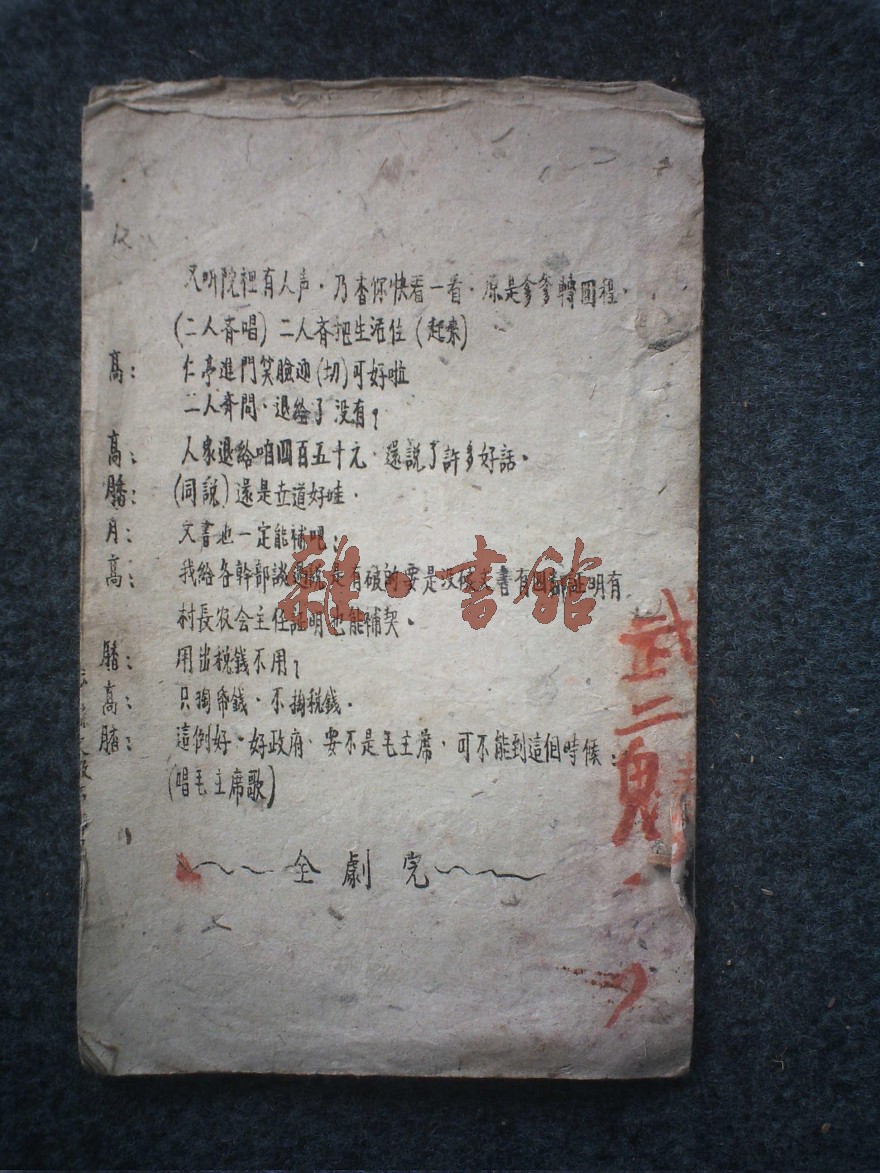 又听院裡有人声·乃杳你快看一看·原是爹爹轉回程·
(二人斉唱)二人斉把生活住(起來)
高: 仁亭進門笑臉迎(切)可好啦
二人斉問·退給了没有?
高: 人家退給咱四百五十元·還說了許多好話。
(同說)還是立道好哇·
月: 文書也一定能補吧;
高: 我給各幹部談 是有破的要是没後文書有四鄰証明有
村長农会主任証明也能補契。
用出税錢不用?
高: 只掏帋錢·不掏税錢·
這倒好·好政府·要不是毛主席·可不能到這個時候;
(唱毛主席歌)
全劇完
雜·書館
武二鬼